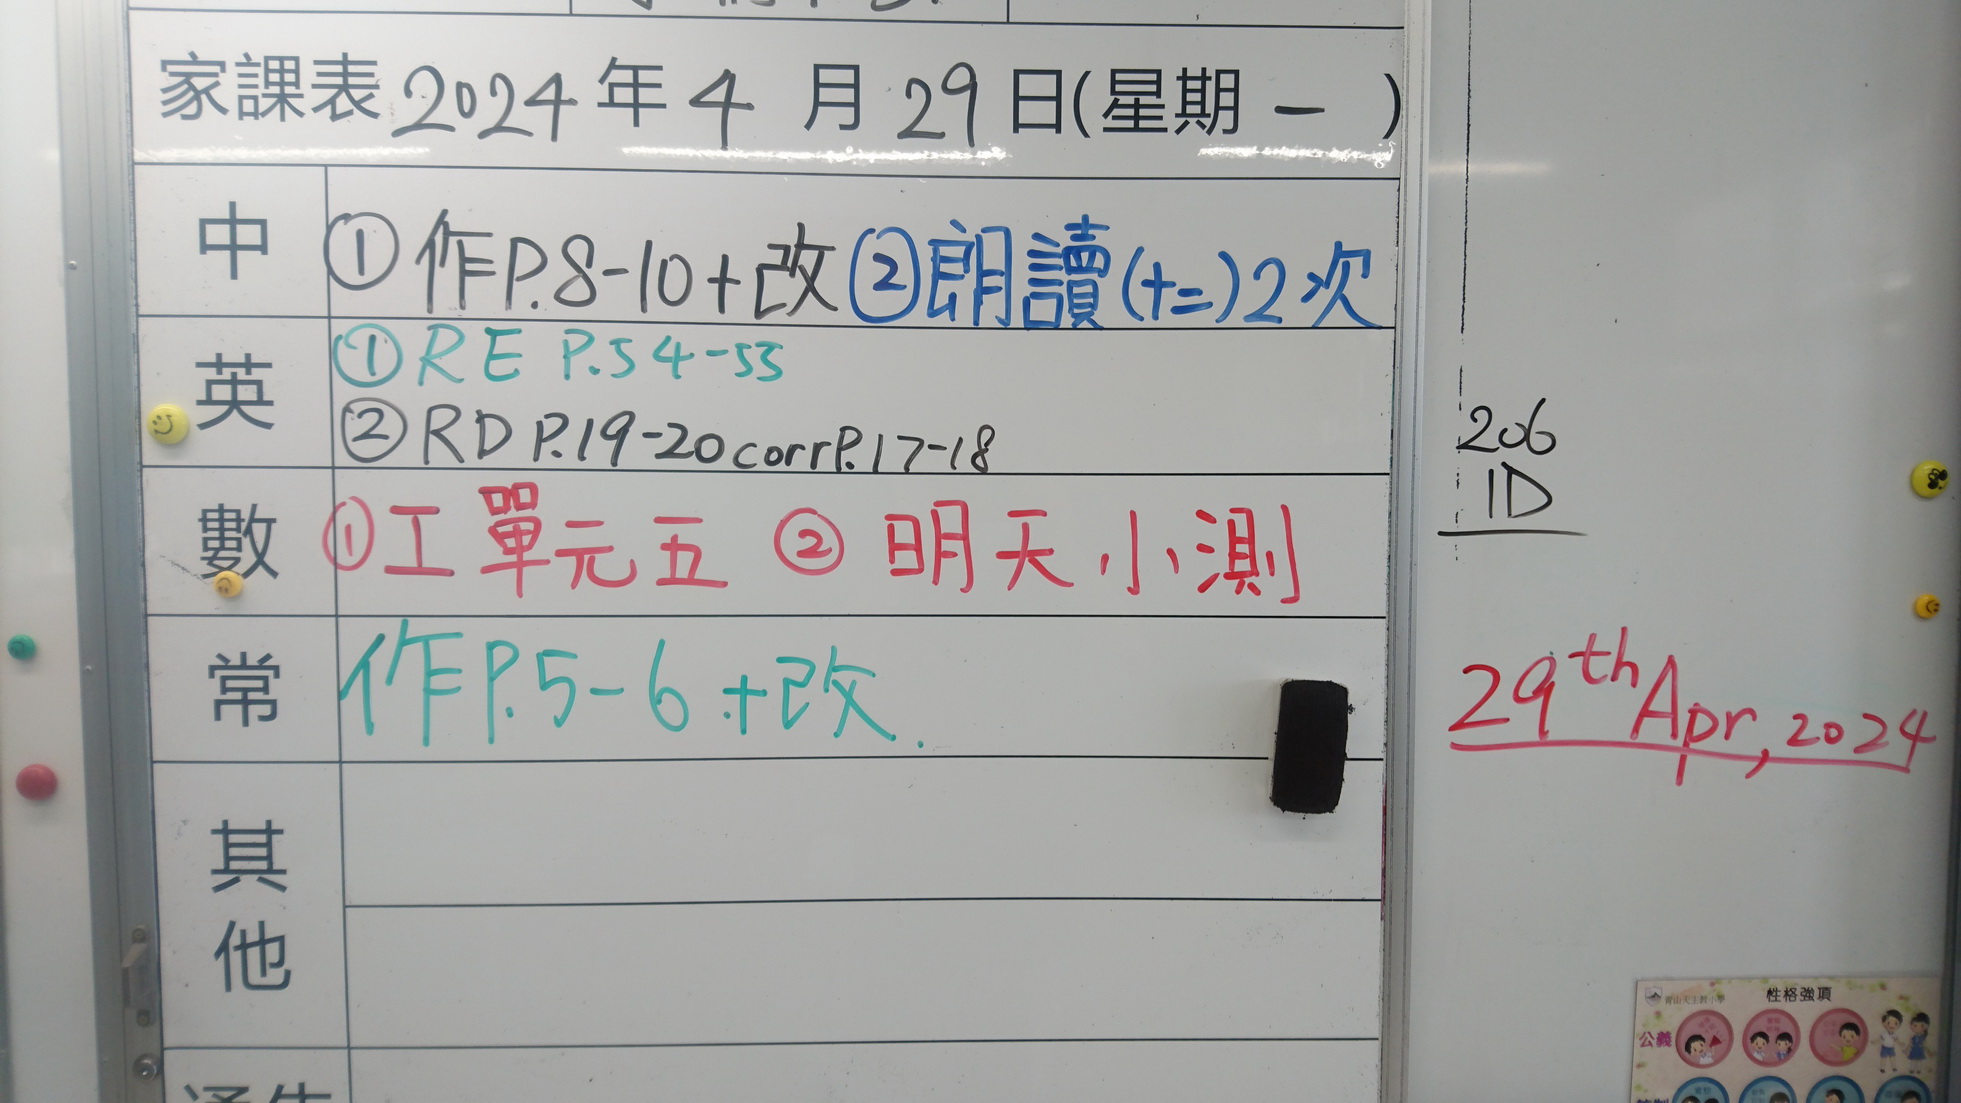 家課表 2024 年 4 月 29 日(星期 一 )
中 ①作P.8-10+改 ②朗讀(十二)2次
英 ①RE P.54-55
②RD P.19-20 corr P.17-18
數 ①工單元五 ② 明天小測
常 作P.5-6 + 改.
其他
206
1D
29th Apr, 2024
青山天主教小學 性格強項
公義